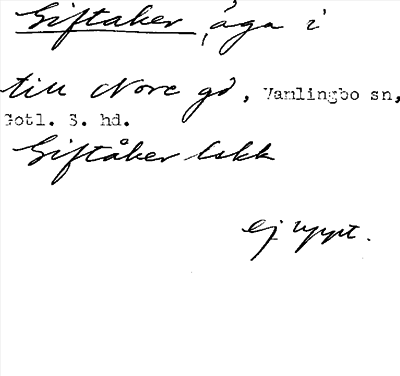 Giftaker, åga i
till Nore gd, Vamlingbo sn,
Gotl. S. hd.
Giftåker lokk
ej uppt.